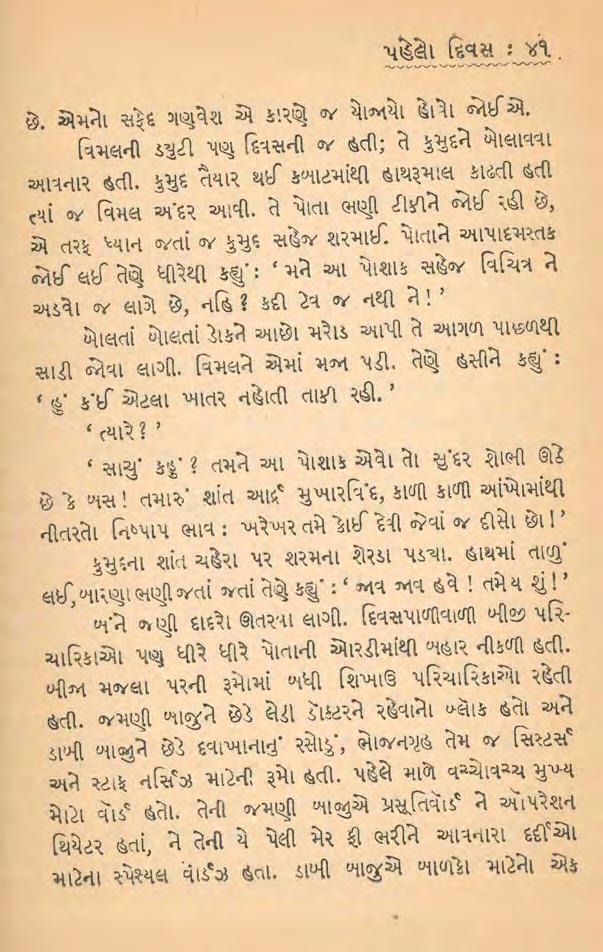 પહેલો દિવસ : ૪૧
છે. એમનો સફેદ ગણવેશ એ કારણે જ યોજાયો હોવો જોઈએ.
વિમલની ડ્યુટી પણ દિવસની જ હતી; તે કુમુદને બોલાવવા
આવનાર હતી. કુમુદ તૈયાર થઈ કબાટમાંથી હાથરૂમાલ કાઢતી હતી
ત્યાં જ વિમલ અંદર આવી. તે પોતા ભણી ટીકીને જોઈ રહી છે,
એ તરફ ધ્યાન જતાં જ કુમુદ સહેજ શરમાઈ. પોતાને આપાદમસ્તક
જોઈ લઈ તેણે ધીરેથી કહ્યું : ‘મને આ પોશાક સહેજ વિચિત્ર ને
અડવો જ લાગે છે, નહિ? કદી ટેવ જ નથી ને!’
બોલતાં બોલતાં ડોકને આછો મરોડ આપી તે આગળ પાછળથી
સાડી જોવા લાગી. વિમલને એમાં મજા પડી. તેણે હસીને કહ્યું :
‘હું કંઈ એટલા ખાતર નહોતી તાકી રહી.’
‘ત્યારે?’
‘સાચું કહું? તમને આ પોશાક એવો તો સુંદર શોભી ઊઠે
છે કે બસ! તમારું શાંત આર્દ્ર મુખારવિંદ, કાળી કાળી આંખોમાંથી
નીતરતો નિષ્પાપ ભાવ : ખરેખર તમે કોઈ દેવી જેવાં જ દીસો છો!’
કુમુદના શાંત ચહેરા પર શરમના શેરડા પડ્યા. હાથમાં તાળું
લઈ, બારણા ભણી જતાં જતાં તેણે કહ્યું : ‘જાવ જાવ હવે! તમેય શું!’
બંને જણી દાદરો ઊતરવા લાગી. દિવસપાળીવાળી બીજી પરિ-
ચારિકાઓ પણ ધીરે ધીરે પોતાની ઓરડીમાંથી બહાર નીકળી હતી.
બીજા મજલા પરની રૂમોમાં બધી શિખાઉ પરિચારિકાઓ રહેતી
હતી. જમણી બાજુને છેડે લેડી ડૉક્ટરને રહેવાનો બ્લૉક હતો અને
ડાબી બાજુને છેડે દવાખાનાનું રસોડું, ભોજનગૃહ તેમ જ સિસ્ટર્સ
અને સ્ટાફ નર્સિઝ માટેની રૂમો હતી. પહેલે માળે વચ્ચોવચ્ચ મુખ્ય
મોટો વૉર્ડ હતો. તેની જમણી બાજુએ પ્રસૂતિવૉર્ડ ને ઑપરેશન
થિયેટર હતાં, ને તેની યે પેલી મેર ફી ભરીને આવનારા દર્દીઓ
માટેના સ્પેશ્યલ વૉર્ડઝ હતા. ડાબી બાજુએ બાળકો માટેનો એક